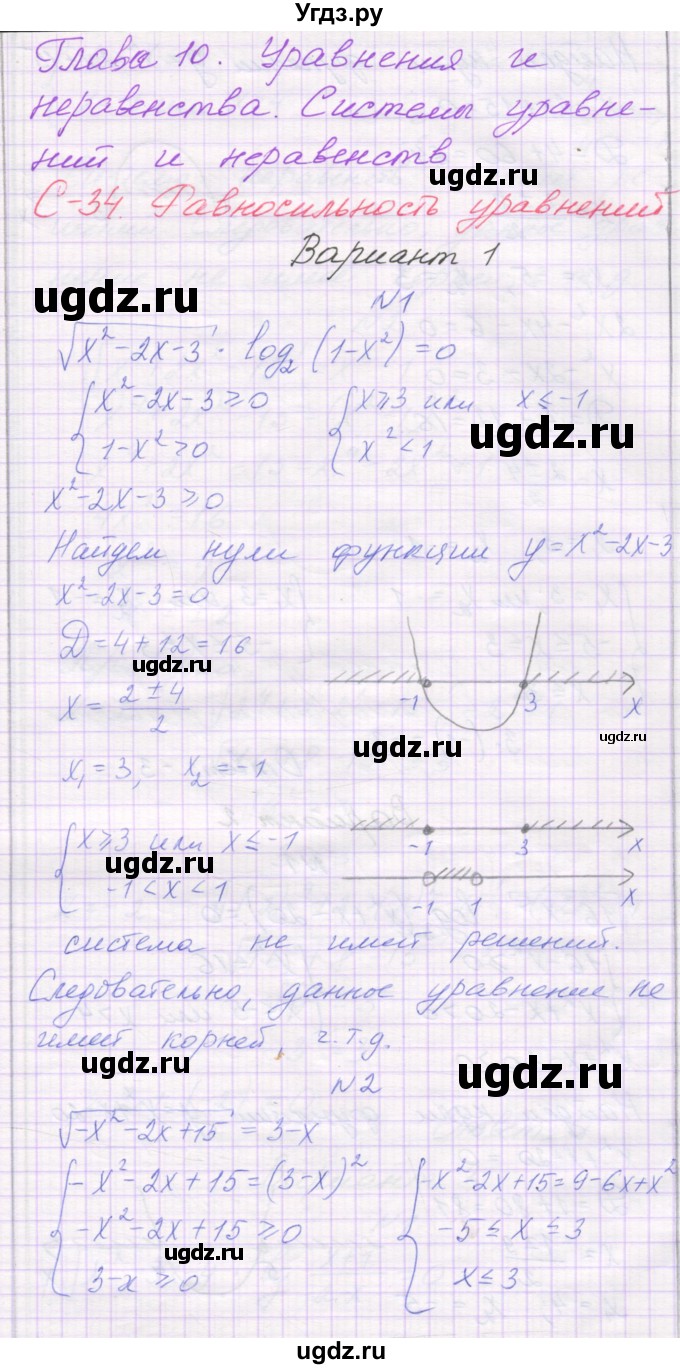 Угдз.ру
Глава 10. Уравнения и
неравенства. Системы уравне-
ний и неравенств
ugdz.ru
С-34. Равносильность уравнений
Вариант 1
ugdz.ru
N1
√(x²-2x-3) · log₂(1-x²)=0
{ x²-2x-3≥0    { x≥3 или x≤-1
{ 1-x²>0    { x²<1
ugdz.ru
x²-2x-3≥0
Найдем нули функции y=x²-2x-3
x²-2x-3=0
D=4+12=16
ugdz.ru
x = (2±4)/2
-1 3 x
ugdz.ru
ugdz.ru
x₁=3, x₂=-1
{ x≥3 или x≤-1
-1 3 x
ugdz.ru
{ -1<x<1
-1 1 x
система не имеет решений.
ugdz.ru
Следовательно, данное уравнение не
имеет корней, ч.т.д.
ugdz.ru
N2
ugdz.ru
√(-x²-2x+15) = 3-x
{ -x²-2x+15=(3-x)²    { -x²-2x+15=9-6x+x²
{ -x²-2x+15≥0    { -5≤x≤3
ugdz.ru
{ 3-x≥0    { x≤3
ugdz.ru